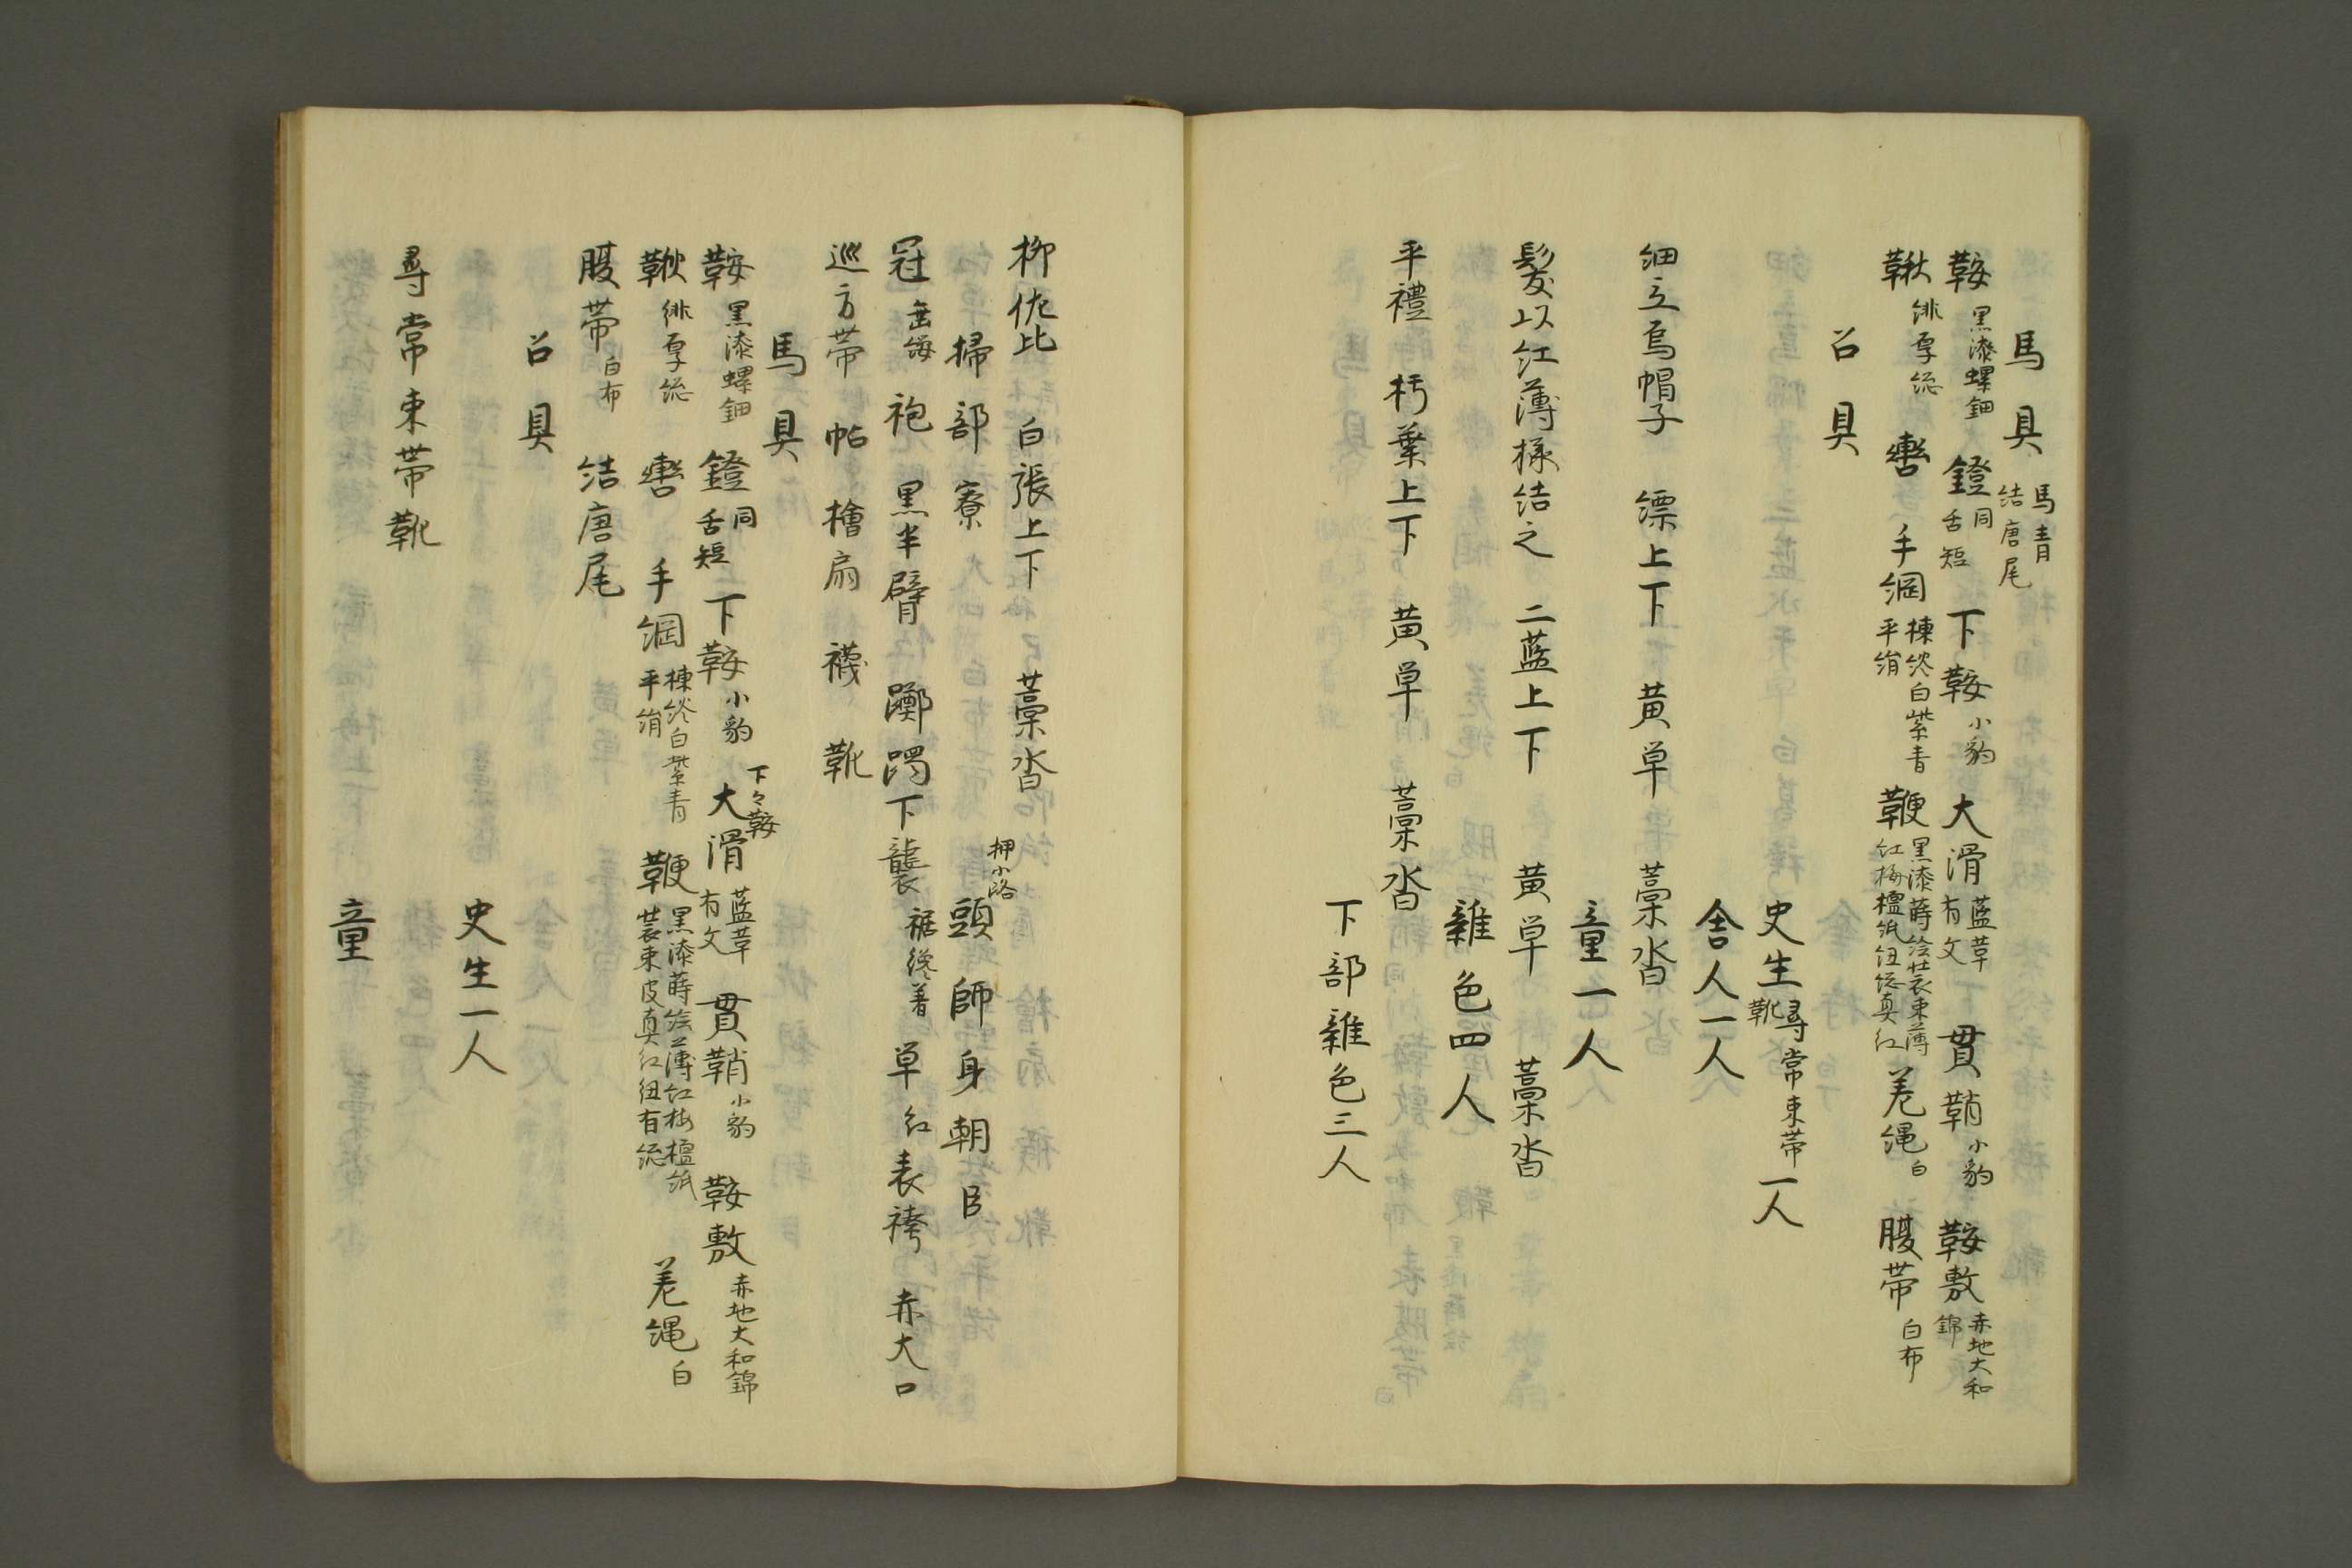 馬具 馬青 結唐尾
鞍 黒漆螺鈿 鐙 同 舌短 下鞍 小豹 大滑 藍革 有文 貫鞘 小豹 鞍敷 赤地大和 錦
鞦 緋厚総 轡 手綱 楝淡白紫青 平絹 鞭 黒漆蒔絵装束薄 紅梅檀紙紐総真紅 差縄 白 腹帯 白布
召具
史生 尋常束帯 靴 一人
舎人一人
細立烏帽子 縹上下 黄単 藁沓
童一人
髪以紅薄様結之 二藍上下 黄単 藁沓
雑色四人
平禮 朽葉上下 黄単 藁沓
下部雑色三人
柳佐比 白張上下 藁沓
掃部寮 押小路 頭師身朝臣
冠 垂纓 袍 黒半臂 躑躅下襲 裾纔着 単 紅 表袴 赤大口
巡方帯 帖 檜扇 襪 靴
馬具
鞍 黒漆螺鈿 鐙 同 舌短 下鞍 小豹 下々鞍 大滑 藍革 有文 貫鞘 小豹 鞍敷 赤地大和錦
鞦 緋厚総 轡 手綱 楝淡白紫青 平絹 鞭 黒漆蒔絵薄紅梅檀紙 装束皮真紅紐有総 差縄 白
腹帯 白布 結唐尾
召具
史生一人
尋常束帯靴
童